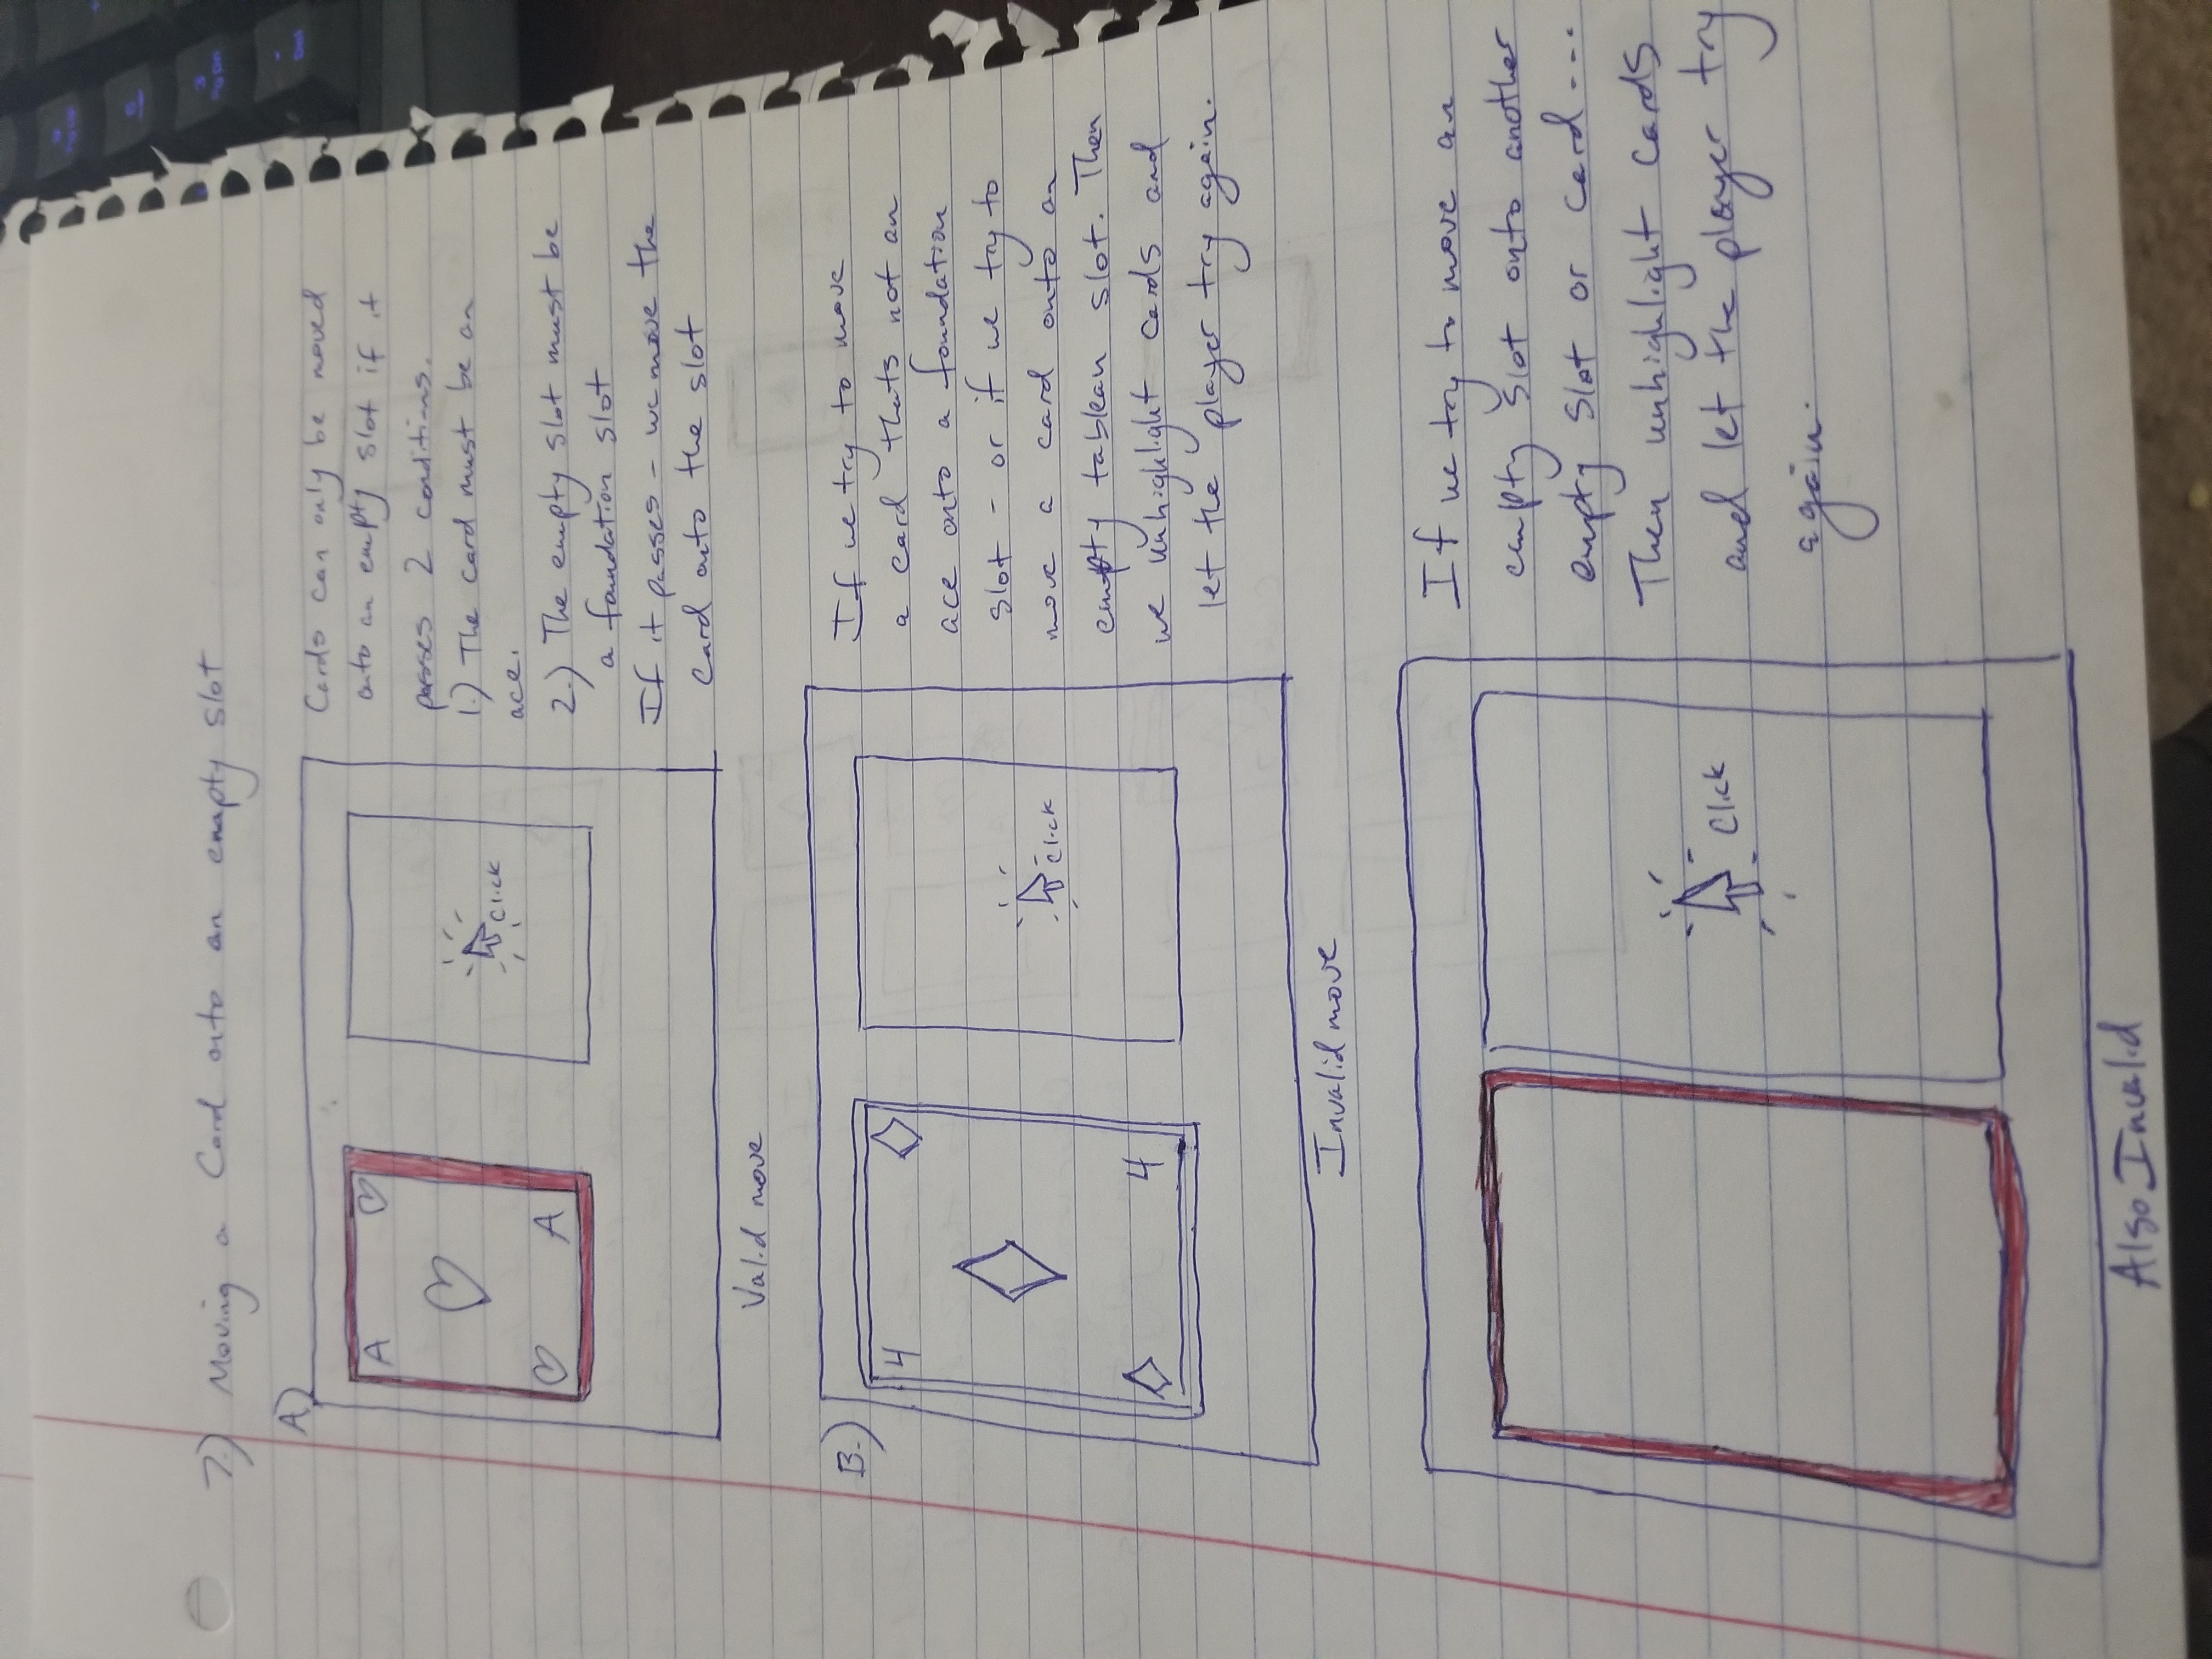 7.) Moving a Card onto an empty slot
A.)
A
A
Click
Cards can only be moved
onto an empty slot if it
passes 2 conditions.
1.) The card must be an
ace.
2.) The empty slot must be
a foundation slot
If it passes - we move the
Card onto the slot
Valid move
B.)
4
4
Click
If we try to move
a card thats not an
ace onto a foundation
slot - or if we try to
move a card onto an
empty tableau slot. Then
we unhighlight cards and
let the player try again.
Invalid move
Click
If we try to move an
empty slot onto another
empty slot or card...
Then unhighlight cards
and let the player try
again.
Also Invalid